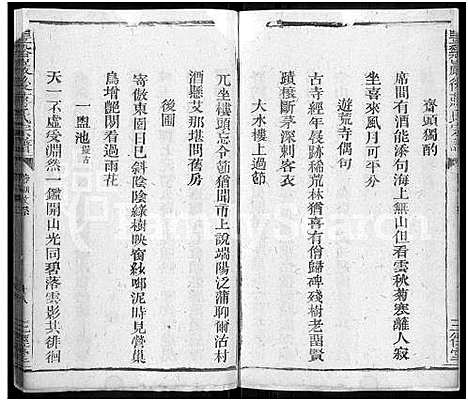 齋頭獨酌
席間有酒能添句海上無山但看雲秋菊寒離人寂
坐喜來風月可平分
遊荒寺偶句
古寺經年長跡稀荒林猶喜有僧歸碑殘樹老留賢
蹟殿斷茅深刺客衣
大水樓上過節
兀坐樓頭忘令節猶聞市上說端陽泛蒲聊爾沽村
酒懸艾那堪問舊房
後圃
寄傲東園日已斜陰陰綠樹映窗紗啣泥時見營巢
鳥增艷閒看過雨花
一鑑池
天一不虛受淵然一鑑開山光同碧落雲影共徘徊
三徑堂
三徑堂
FamilySearch